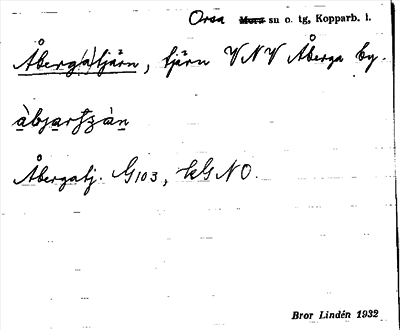 Orsa su o. tg, Kopparb. l.
Åberg(a)tjärn, tjärn VNV Åberga by.
Åbergatj. G103, kG NO.
Bror Lindén 1932